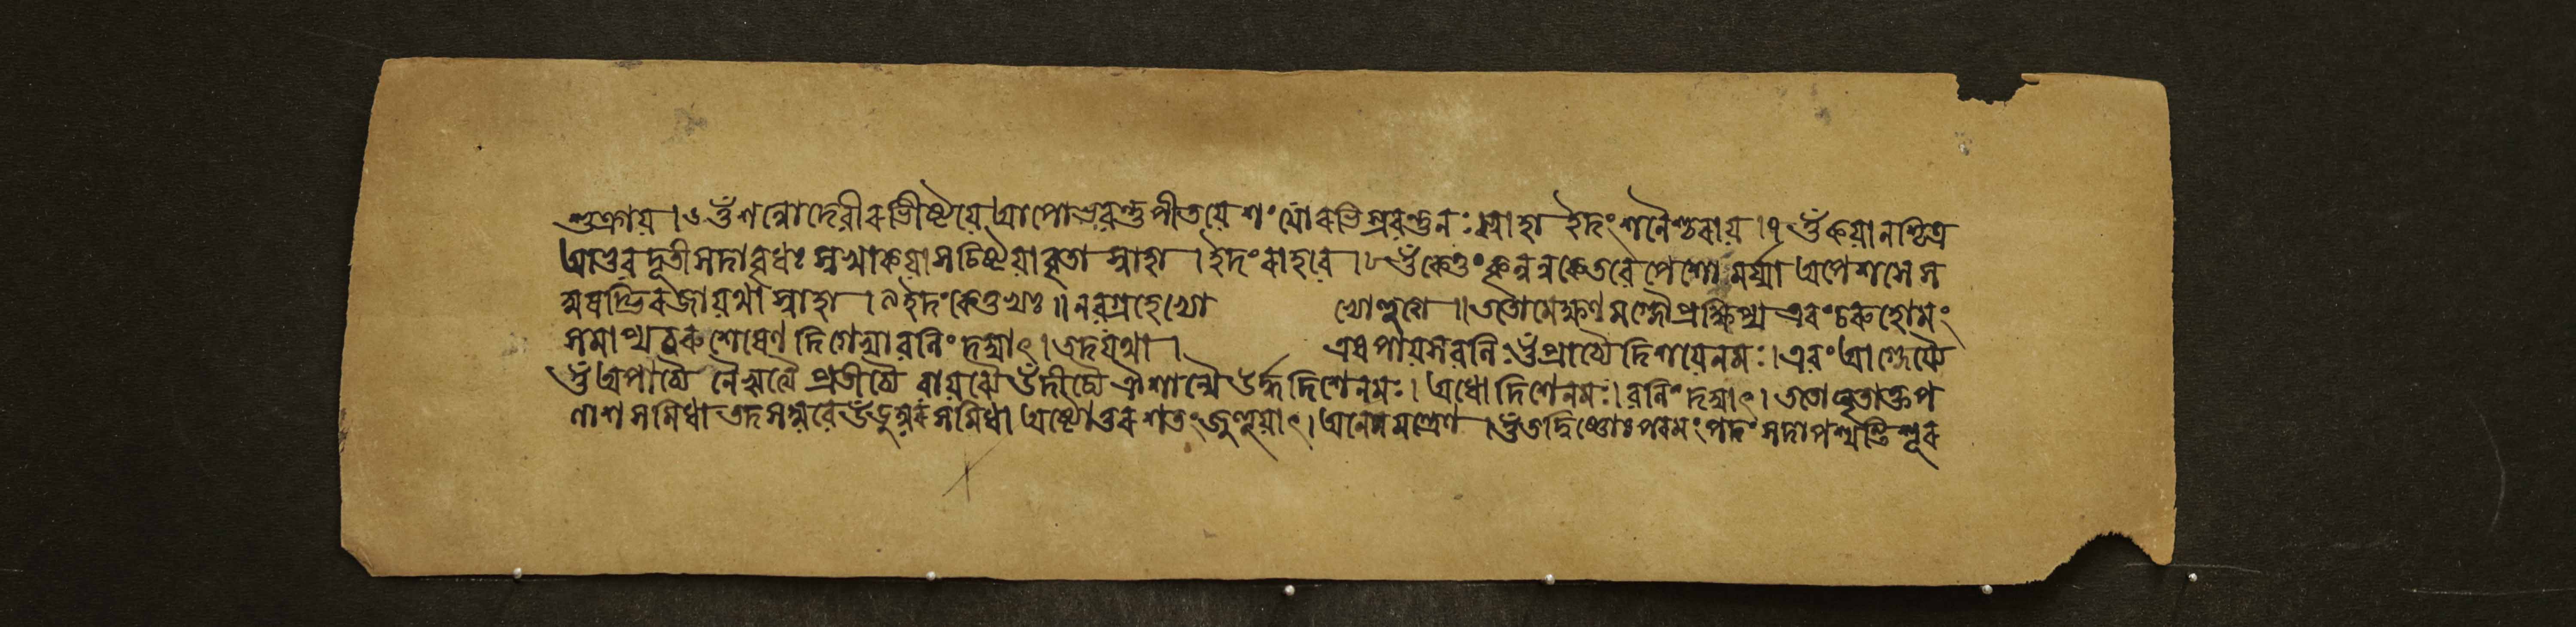 শুক্রায় ।৬ ওঁ শন্নোদেবীরভীষ্টয়ে আপোভবন্তু পীতয়ে শং যোরভিস্রবন্তুনঃ । স্বাহা ইদং শনৈশ্চরায় ।৭ ওঁ কয়ানশ্চিত্র
আভুবদূতী সদাবৃধঃ সখা কয়া সচিষ্ঠয়াবৃতা স্বাহা । ইদং রাহবে ।৮ ওঁ কেতুং কৃন্নন্নকেতবে পেশো মর্য্যা অপেশসে স
মুষদ্ভিরজায়থাঃ স্বাহা ।৯ ইদং কেতুভ্যঃ ॥ নবগ্রহেভ্যো ভ্যোজুহুয়াৎ ॥ ততোমেক্ষণমগ্নৌপ্রক্ষিপ্য এবং চরুহোমং
সমাপ্য চরুশেষেণ দিগেভ্যোবলিং দদ্যাৎ । তদ্যথা । এষ পায়সবলিঃ ওঁ প্রাচ্যৈ দিশয়েনমঃ । এবং আগ্নেয্যৈ
ওঁ অপাচ্যৈ নৈঋত্যৈ প্রতীচ্যৈ বায়ব্যৈ উদীচ্যৈ ঐশান্যৈ ঊর্দ্ধ দিশেনমঃ । অধো দিশেনমঃ । বলিং দদ্যাৎ । ততোঘৃতাক্ত প
লাশ সমিধা তদসম্ভবে উড়ুম্বর সমিধা অষ্টোত্তরশতং জুহুয়াৎ । অনেন মন্ত্রেণ । ওঁ তদ্বিষ্ণোঃ পরমং পদং সদাপশ্যন্তি শূর